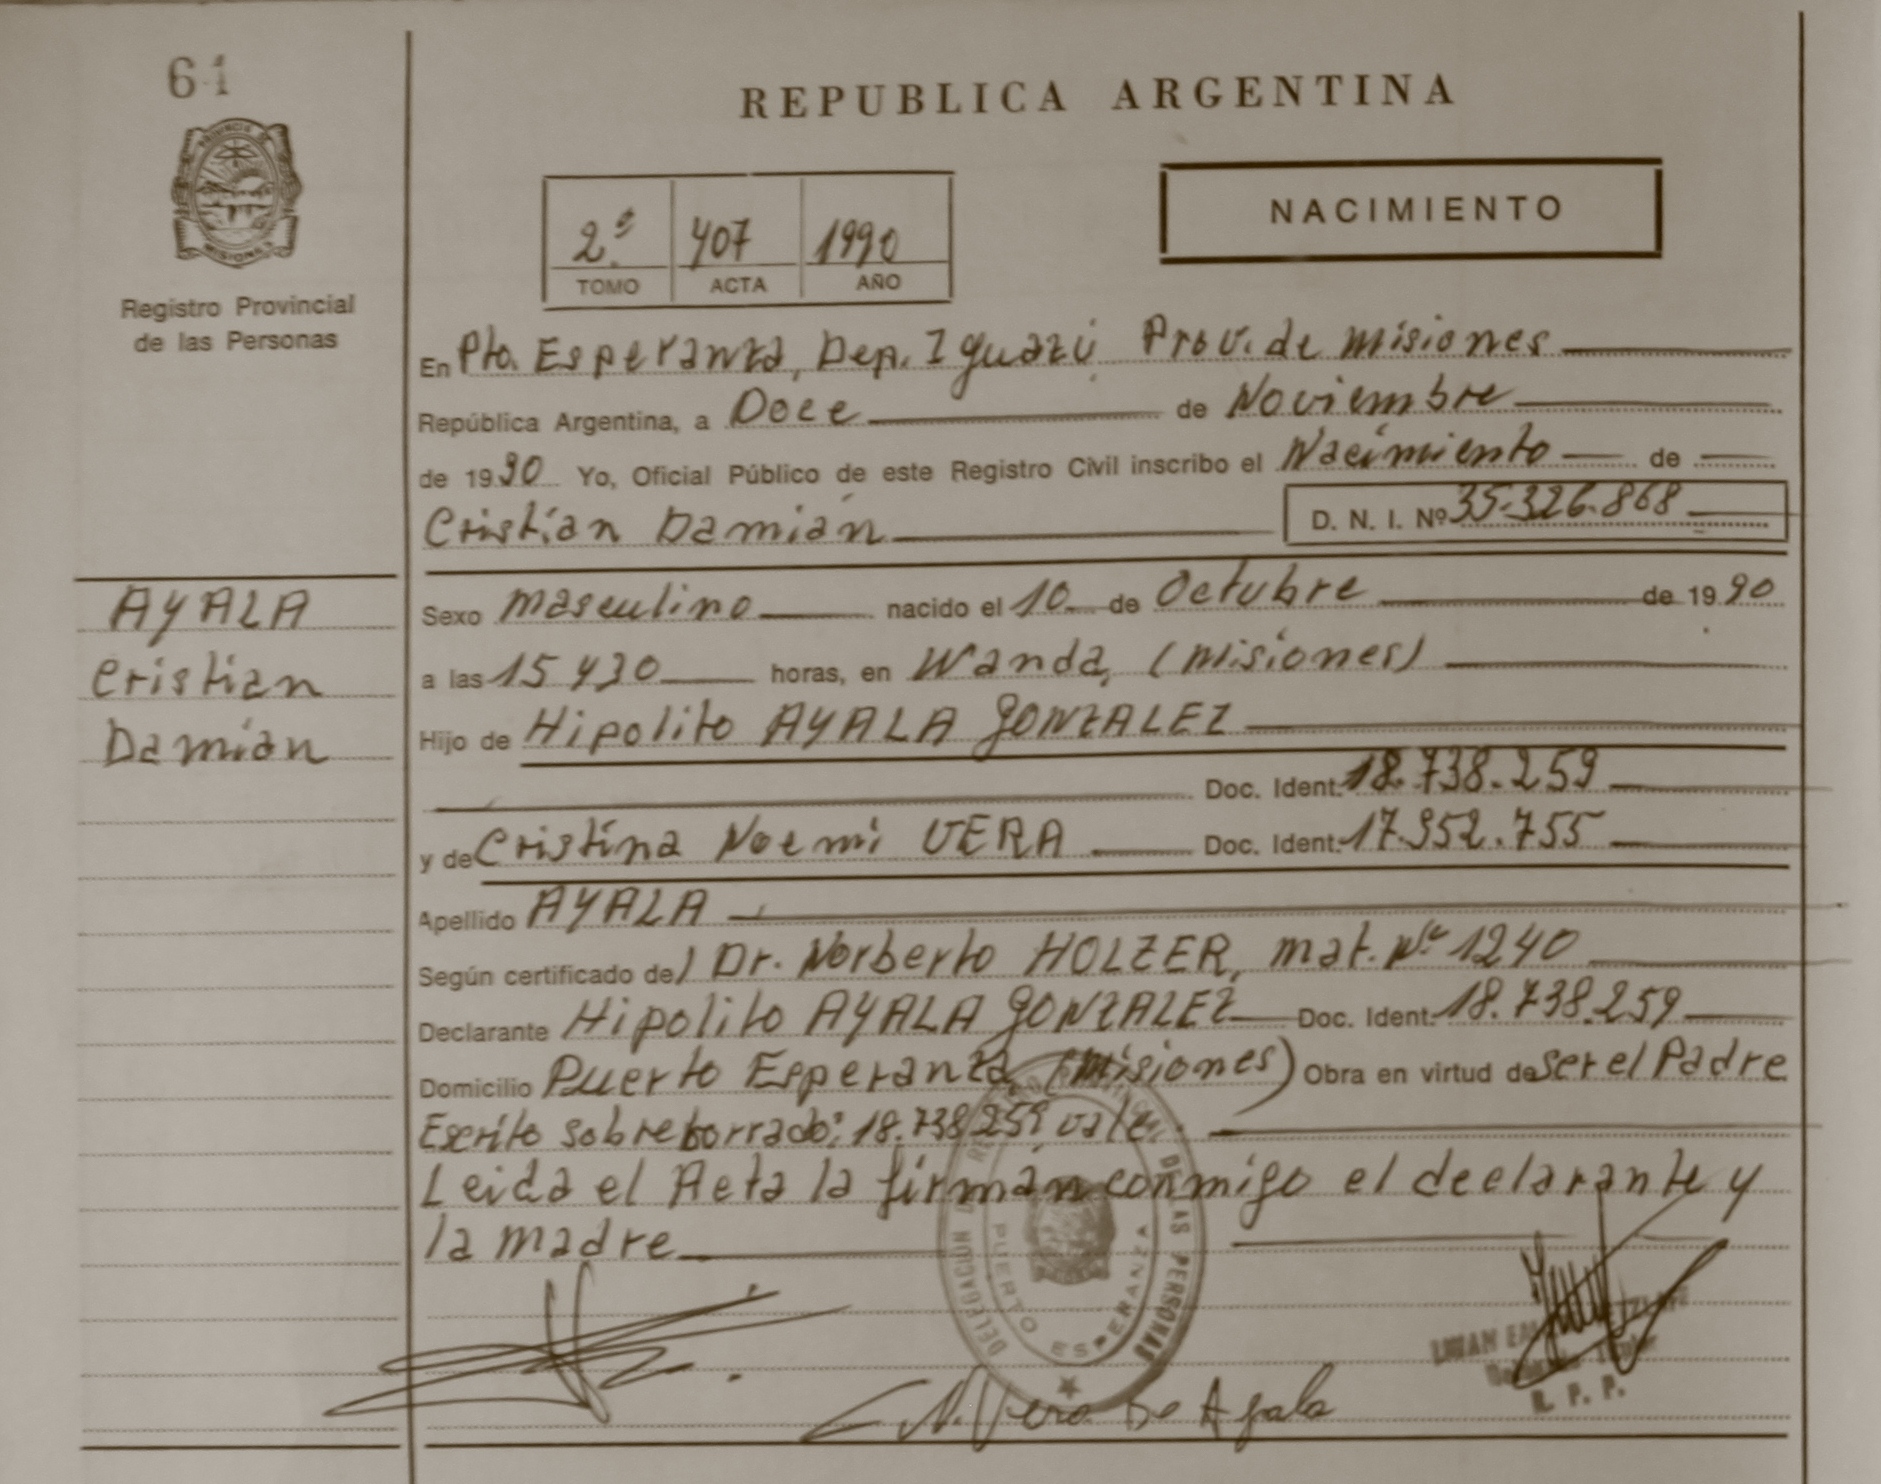 61
PROVINCIA DE
MISIONES
Registro Provincial
de las Personas
REPUBLICA ARGENTINA
2º 407 1990
TOMO ACTA AÑO
NACIMIENTO
En Pto. Esperanza, Dep. Iguazú Prov. de Misiones
República Argentina, a Doce de Noviembre
de 1990 Yo, Oficial Público de este Registro Civil inscribo el Nacimiento de
Cristian Damián D. N. I. Nº 35.326.868
AYALA
Cristian
Damián
Sexo Masculino nacido el 10 de Octubre de 1990
a las 15 y 30 horas, en Wanda, (Misiones)
Hijo de Hipolito AYALA GONZALEZ
Doc. Ident. 18.738.259
y de Cristina Noemi VERA Doc. Ident. 17.952.755
Apellido AYALA
Según certificado del Dr. Norberto HOLZER, mat. Nº 1240
Declarante Hipolito AYALA GONZALEZ Doc. Ident. 18.738.259
Domicilio Puerto Esperanza (Misiones) Obra en virtud de ser el Padre
Escrito sobreborrado: 18.738.259 vale.
Leida el Acta la firman conmigo el declarante y
la madre
DELEGACION DE REGISTRO PROVINCIAL DE LAS PERSONAS
PUERTO ESPERANZA
C.N. Vera De Ayala
R. P. P.